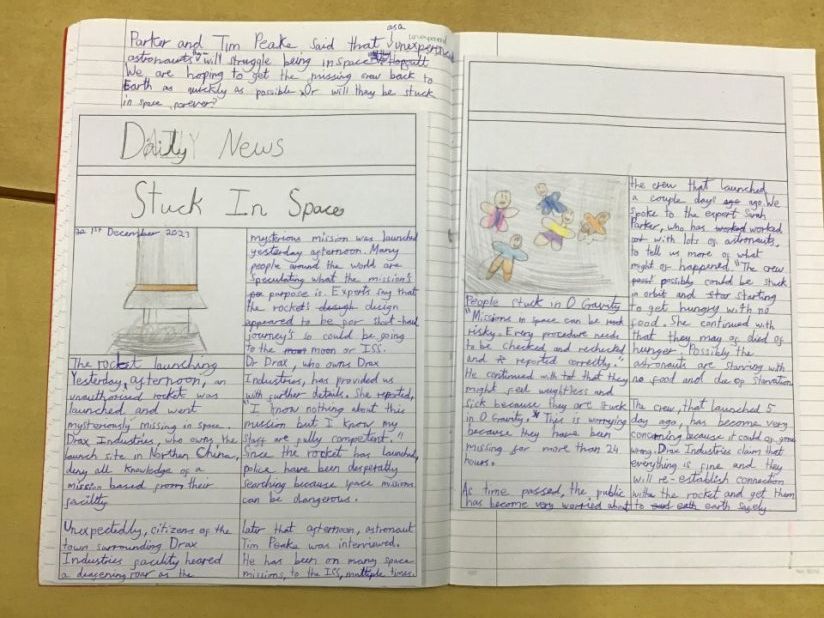 asa
unexpected
Parker and Tim Peake said that unexpertised
astronauts will struggle being in space
We are hoping to get the missing crew back to
Earth as quickly as possible. Or will they be stuck
in space forever?
Daily News
Stuck In Space
1st December 2021
The rocket launching
Yesterday, afternoon, an
unauthorised rocket was
launched and went
mysteriously missing in space.
Drax Industries, who owns the
launch site in Northen China,
deny all knowledge of a
mission based from their
facility
Unexpectedly, citizens of the
town surrounding Drax
Industries facility heared
a deafening roar as the
mysterious mission was launched
yesterday afternoon. Many
people around the world are
speculating what the mission's
purpose is. Experts say that
the rocket's design
appeared to be for short-haul
journey's so could be going
to the moon or ISS.
Dr Drax, who owns Drax
Industries, has provided us
with further details. She reported,
"I know nothing about this
mission but I know my
staff are fully competent."
Since the rocket has launched,
police have been desperatly
searching because space missions
can be dangerous.
Later that afternoon, astronaut
Tim Peake was interviewed.
He has been on many space
missions, to the ISS, multiple times.
People stuck in 0 Gravity
"Missions in space can be
risky. Every procedure needs
to be checked and rechecked
and reported correctly."
He continued with that they
might feel weightless and
sick because they are stuck
in 0 Gravity." This is worrying
because they have been
missing for more than 24
hours.
As time passed, the public
has become very worried about
the crew that launched
a couple days ago. We
spoke to the expert Sarah
Parker, who has worked
with lots of astronauts,
to tell us more of what
might of happened. "The crew
possibly could be stuck
in orbit and starting
to get hungry with no
food. She continued with
that they may of died of
hunger. Possibly the
astronauts are starving with
no food and die of starvation
The crew, that launched 5
day ago, has become very
concerning because it could of gone
wrong. Drax Industries claim that
everything is fine and they
will re-establish connection
with the rocket and get them
to earth safely